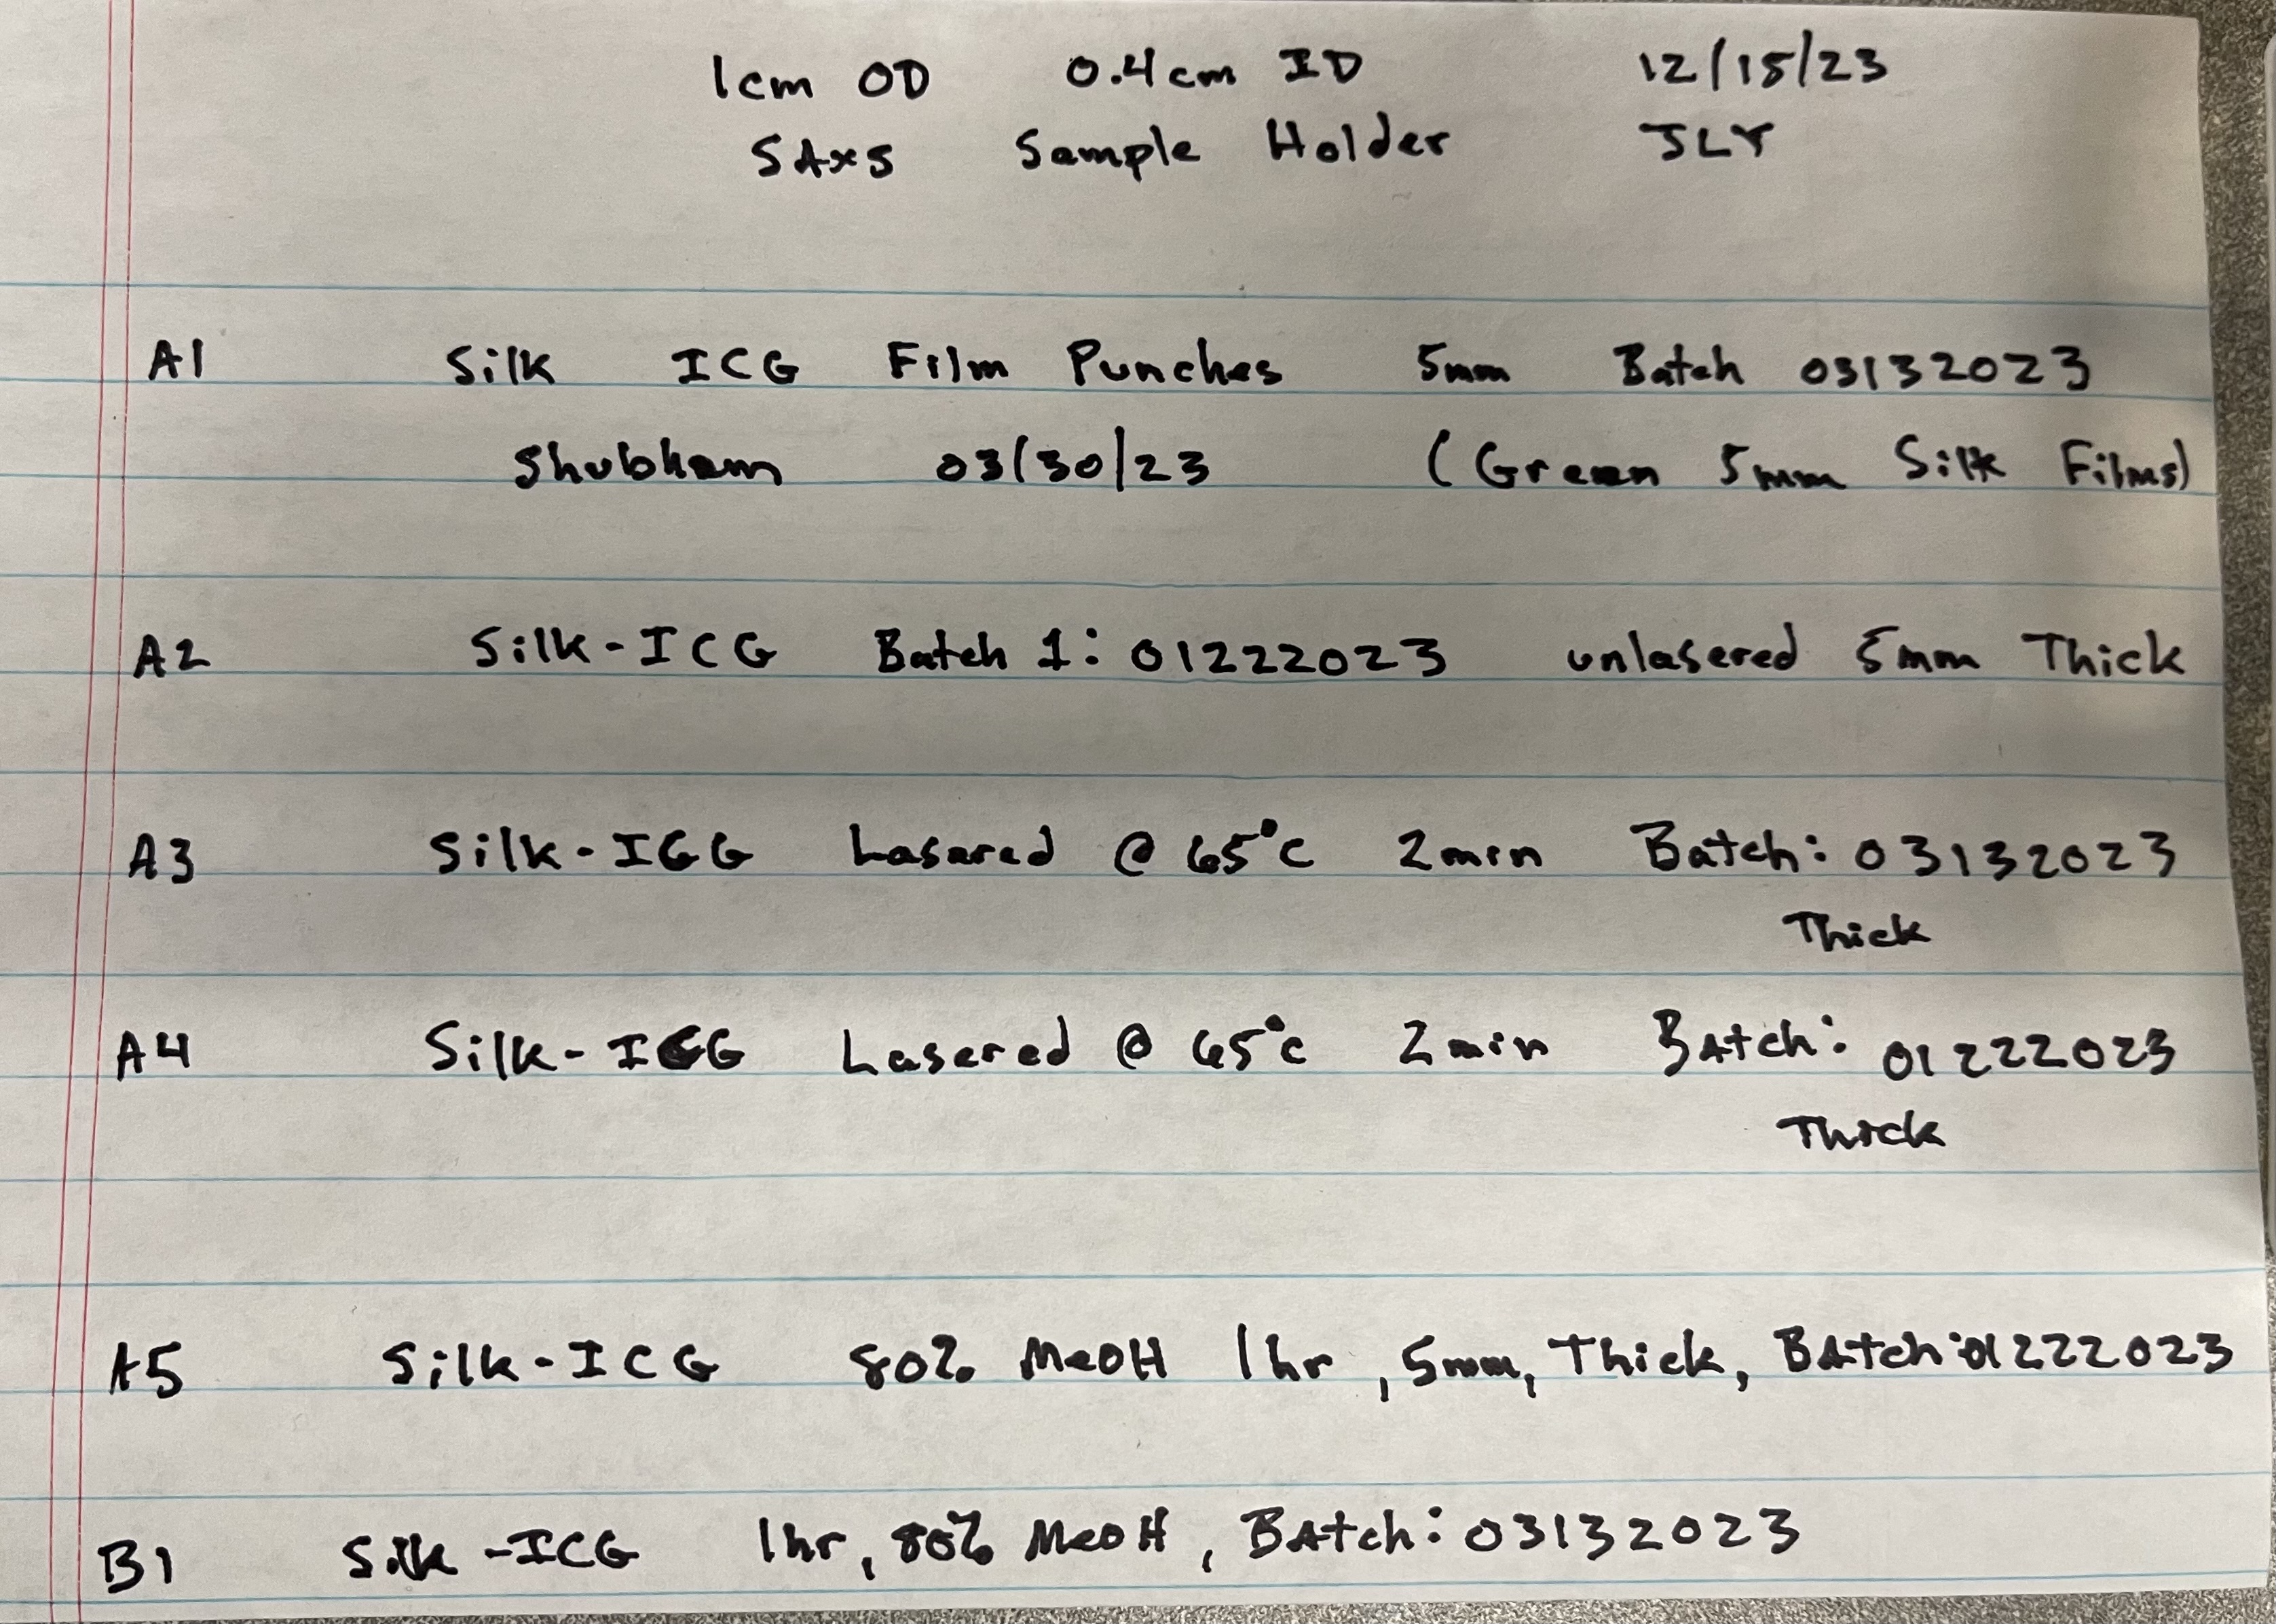 1cm OD 0.4cm ID 12/15/23
SAxS Sample Holder JLY
A1 Silk ICG Film Punches 5mm Batch 03132023
Shubham 03/30/23 (Green 5mm Silk Films)
A2 Silk-ICG Batch 1: 01222023 unlasered 5mm Thick
A3 Silk-ICG Lasered @ 65°C 2min Batch: 03132023
Thick
A4 Silk-ICG Lasered @ 65°C 2min BAtch: 01222023
Thick
A5 Silk-ICG 80% MeOH 1hr, 5mm, Thick, BAtch: 01222023
B1 Silk-ICG 1hr, 80% MeOH, BAtch: 03132023